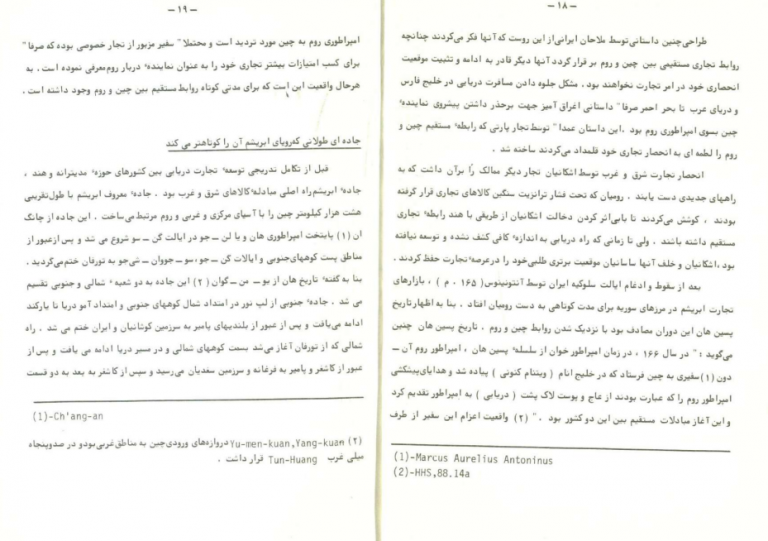 - ۱۸ -
طراحی چنین داستانی توسط ملاحان ایرانی از این روست که آنها فکر می‌کردند چنانچه
روابط تجاری مستقیمی بین چین و روم بر قرار گردد آنها دیگر قادر به ادامه و تثبیت موقعیت
انحصاری خود در امر تجارت نخواهند بود . مشکل جلوه دادن مسافرت دریایی در خلیج فارس
و دریای عرب تا بحر احمر صرفا" داستانی اغراق آمیز جهت برحذر داشتن پیشروی نماینده٬
چین بسوی امپراطوری روم بود . این داستان عمدا" توسط تجار پارتی که رابطه٬ مستقیم چین و
روم را لطمه ای به انحصار تجاری خود قلمداد می‌کردند ساخته شد .
انحصار تجارت شرق و غرب توسط اشکانیان تجار دیگر ممالک را برآن داشت که به
راههای جدیدی دست یابند . رومیان که تحت فشار ترانزیت سنگین کالاهای تجاری قرار گرفته
بودند ، کوشش می‌کردند تا بابی‌اثر کردن دخالت اشکانیان از طریقی با هند رابطه٬ تجاری
مستقیم داشته باشند . ولی تا زمانی که راه دریایی به اندازه٬ کافی کشف نشده و توسعه نیافته
بود ،اشکانیان و خلف آنها ساسانیان موقعیت برتری طلبی خود را درعرصه٬ تجارت حفظ کردند .
بعد از سقوط و ادغام ایالت سلوکیه ایران توسط آنتونینوس ( ۱۶۵ م . ) ، بازارهای
تجارت ابریشم در مرزهای سوریه برای مدت کوتاهی به دست رومیان افتاد . بنا به اظهار تاریخ
پسین هان این دوران مصادف بود با نزدیک شدن روابط چین و روم . تاریخ پسین هان چنین
می‌گوید : " در سال ۱۶۶ ، در زمان امپراطور خوان از سلسله٬ پسین هان ، امپراطور روم آن ــ
دون (۱) سفیری به چین فرستاد که در خلیج انام ( ویتنام کنونی ) پیاده شد و هدایای پیشکشی
امپراطور روم را که عبارت بودند از عاج و پوست لاک پشت ( دریایی ) به امپراطور تقدیم کرد
و این آغاز مبادلات مستقیم بین این دو کشور بود . " (۲) واقعیت اعزام این سفیر از طرف
(1)-Marcus Aurelius Antoninus
(2)-HHS,88.14a
- ۱۹ -
امپراطوری روم به چین مورد تردید است و محتملا" سفیر مزبور از تجار خصوصی بوده که صرفا"
برای کسب امتیازات بیشتر تجاری خود را به عنوان نماینده٬ دربار روم معرفی نموده است . به
هرحال واقعیت این است که برای مدتی کوتاه روابط مستقیم بین چین و روم وجود داشته است .
جاده ای طولانی که رویای ابریشم آن را کوتاهتر می کند
قبل از تکامل تدریجی توسعه٬ تجارت دریایی بین کشورهای حوزه٬ مدیترانه و هند ،
جاده٬ ابریشم راه اصلی مبادله٬ کالاهای شرق و غرب بود . جاده٬ معروف ابریشم با طول تقریبی
هشت هزار کیلومتر چین را با آسیای مرکزی و غربی و روم مرتبط می‌ساخت . این جاده از چانگ
ان (۱) پایتخت امپراطوری هان و یا لن ــ جو در ایالت گن ــ سو شروع می شد و پس از عبور از
مناطق پست کوههای جنوبی و ایالات گن ــ جو ، سو ــ جووان ــ شی‌جو به تورفان ختم می‌گردید .
بنا به گفته٬ تاریخ هان از یو ــ من ــ کوان (۲) این جاده به دو شعبه٬ شمالی و جنوبی تقسیم
می شد . جاده٬ جنوبی از لپ نور در امتداد شمال کوههای جنوبی و امتداد آمو دریا تا یارکند
ادامه می‌یافت و پس از عبور از بلندیهای پامیر به سرزمین کوشانیان و ایران ختم می شد . راه
شمالی که از تورفان آغاز می‌شد بسمت کوههای شمالی و در مسیر دریا ادامه می یافت و پس از
عبور از کاشغر و پامیر به فرغانه و سرزمین سغدیان می‌رسید و سپس از کاشغر به بعد به دو قسمت
(1)-Ch'ang-an
(۲) Yu-men-kuan,Yang-kuan دروازه‌های ورودی چین به مناطق غربی بود و در صد و پنجاه
میلی غرب Tun-Huang قرار داشت .